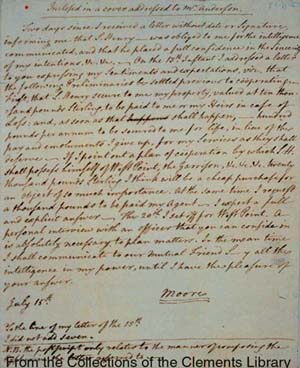 Inclosed in a cover addressed to Mr. Anderson.
Two days since I received a letter without date or Signature,
informing me that S. Henry — was obliged to me for the intelligence
communicated, and that he placed a full confidence in the Sincerity
of my intentions, &c. &c. — On the 13th Instant I addressed a letter
to you expressing my Sentiments and expectations, viz. that
the following Preliminaries be settled previous to cooperating.—
First, that S. Henry secure to me my property, valued at ten thou-
sand pounds Sterling, to be paid to me or my Heirs in case of
loss; and, as soon as that shall happen, — hundred
pounds per annum to be secured to me for life, in lieu of the
pay and emoluments I give up, for my Services as they shall
deserve — If I point out a plan of cooperation by which S. H.
shall possess himself of West Point, the Garrison, &c. &c. &c. twenty
thousand pounds Sterling I think will be a cheap purchase for
an object of so much importance. At the same time I request
a thousand pounds to be paid my Agent — I expect a full
and explicit answer — The 20th I set off for West Point. A
personal interview with an officer that you can confide in
is absolutely necessary to plan matters. In the mean time
I shall communicate to our mutual Friend S—y all the
intelligence in my power, until I have the pleasure of
your answer.
Moore
July 15th
To the line of my letter of the 13th
I did not add seven.
N.B. the postscript only relates to the manner of composing the
From the Collections of the Clements Library